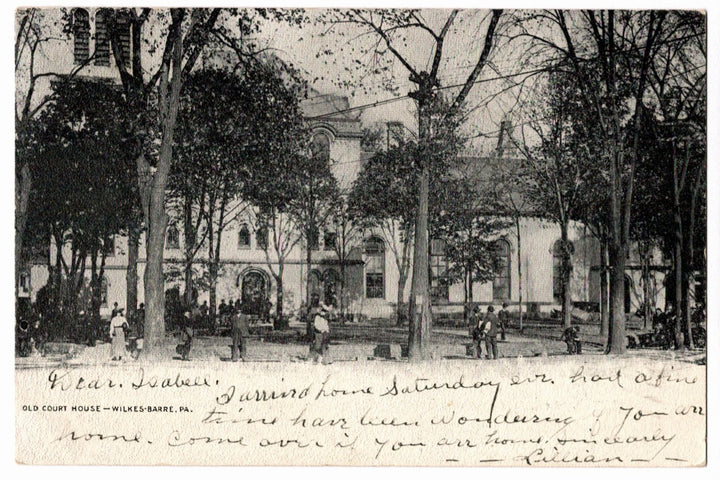 Dear. Isabell.
I arrived home Saturday evr. had a fine
OLD COURT HOUSE—WILKES-BARRE, PA.
time have been wondering if you arr
home. Come over if you arr home, sincerely
Lillian